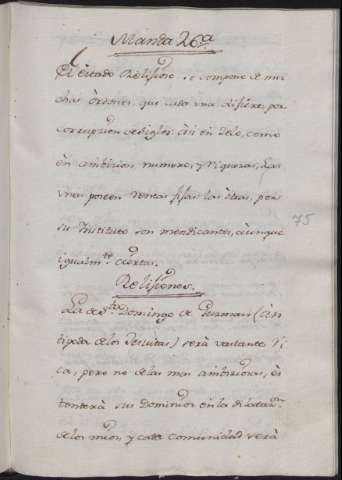 Manda 26.a
El estado Religioso se compone de mu
chas òrdenes, que cada vna difiere, por
corrupcion de siglos àsi en zelo, como
èn ambicion, numero, y riquezas, Las
vnas poseen rentas fijas las òtras, por
su Instituto son mendicantes, aùnque
igualm.te
Religiones.
La de S.to Domingo de Guzman (àn
tipoda de los Jesuitas) serà bastante ri
ca; pero no de las mas ambiciosas, ès
tenderà sus Dominios en la
de los mios, y cada comunidad serà
75